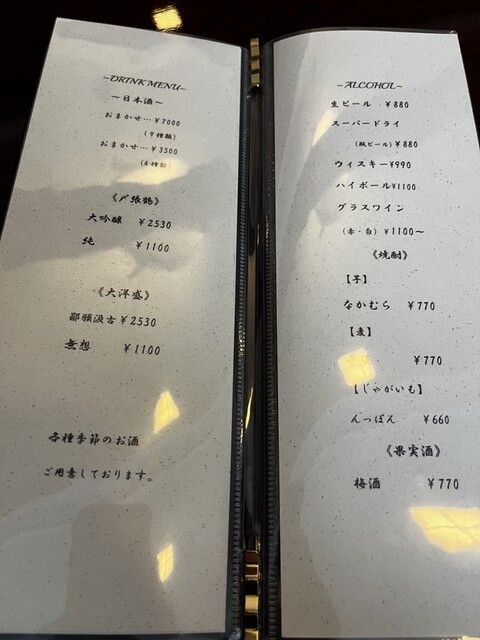 ~DRINK MENU~
~日本酒~
おまかせ…¥7000
(9種類)
おまかせ…¥3500
(4種類)
《〆張鶴》
大吟醸 ¥2530
純 ¥1100
《大洋盛》
鄙願汲古¥2530
無想 ¥1100
各種季節のお酒
ご用意しております。
~ALCOHOL~
生ビール ¥880
スーパードライ
(瓶ビール)¥880
ウィスキー¥990
ハイボール¥1100
グラスワイン
(赤・白) ¥1100~
《焼酎》
【芋】
なかむら ¥770
【麦】
¥770
【じゃがいも】
んっぽん ¥660
《果実酒》
梅酒 ¥770